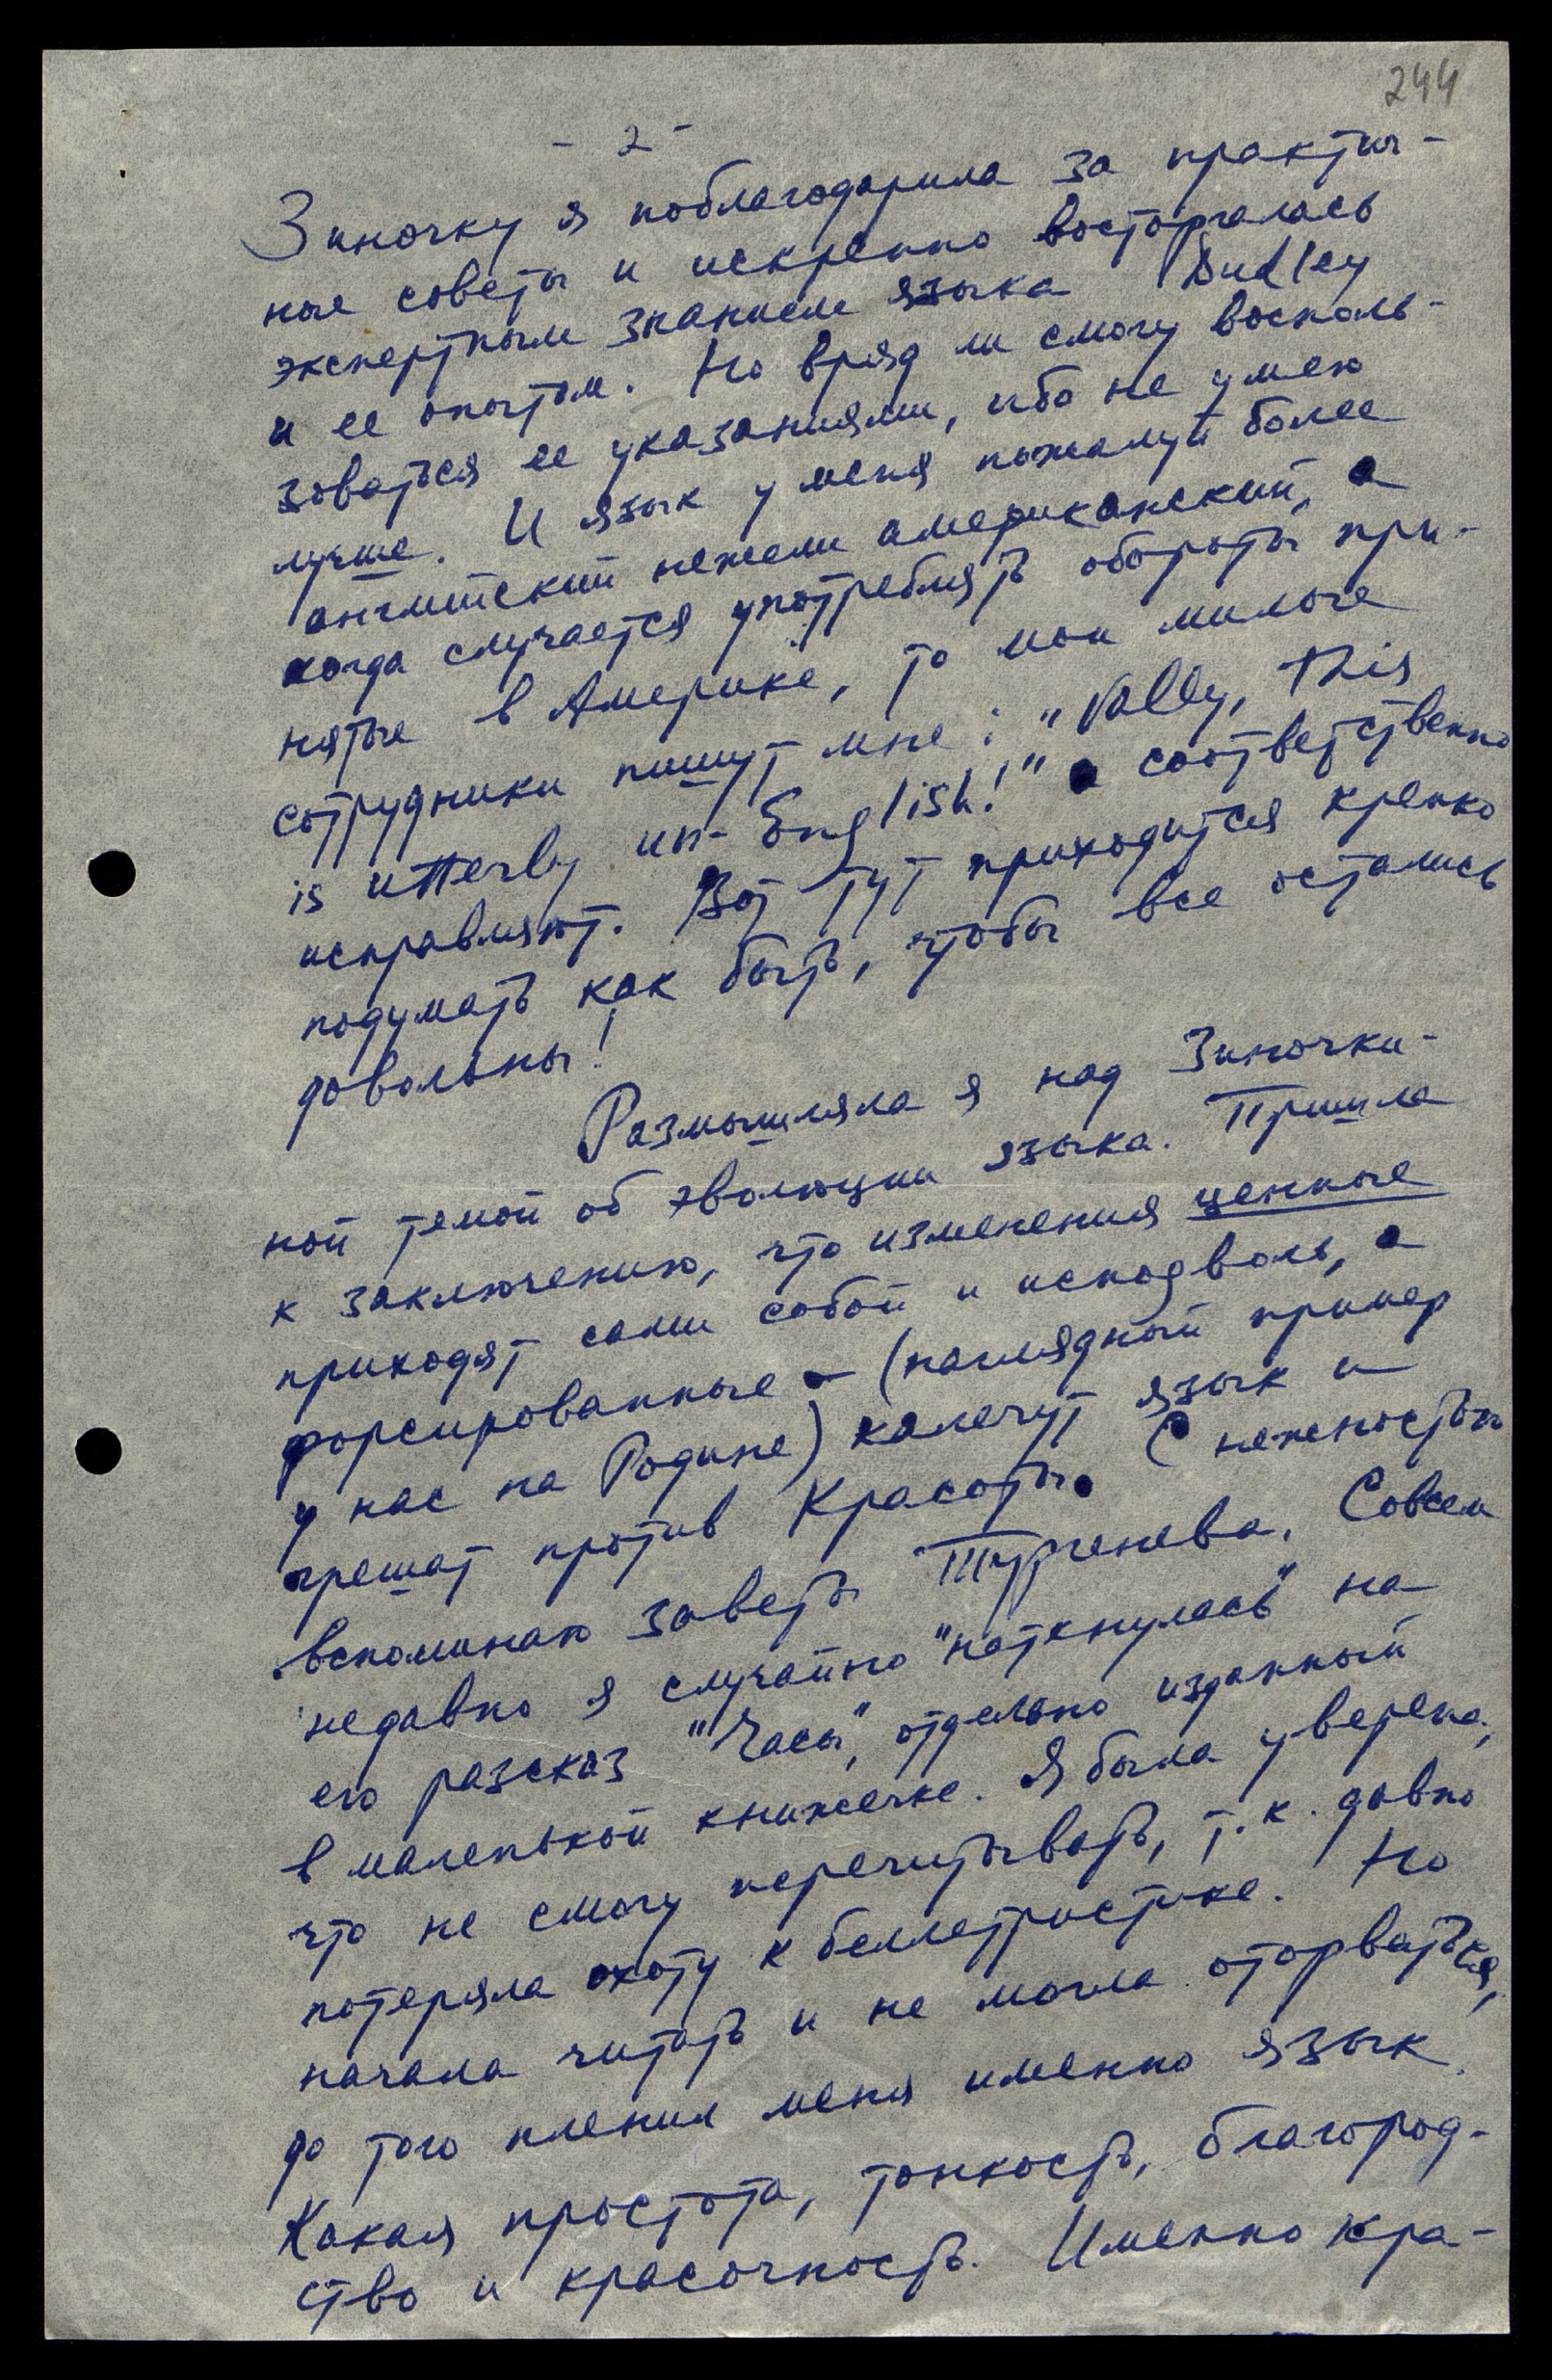 244
- 2 -
Зиночку я поблагодарила за практич-
ные советы и искренно восторгалась
экспертным знанием языка Dudley
и ее опытом. Но вряд ли смогу восполь-
зоваться ее указаниями, ибо не умею
лучше. И язык у меня пожалуй более
английский нежели американский, а
когда случается употреблять обороты при-
нятые в Америке, то мои милые
сотрудники пишут мне: "Vally, this
is utterly un-English!" и соответственно
исправляют. Вот тут приходится крепко
подумать как быть, чтобы все остались
довольны!
Размышляла я над Зиночки-
ной темой об эволюции языка. Пришла
к заключению, что изменения ценные
приходят сами собой и исподволь, а
форсированные - (наглядный пример
у нас на Родине) калечут язык и
грешат против Красоты. С нежностью
вспоминаю заветы Тургенева. Совсем
недавно я случайно "наткнулась" на
его разсказ "Часы", отдельно изданный
в маленькой книжечке. Я была уверена,
что не смогу перечитывать, т.к. давно
потеряла охоту к беллетристике. Но
начала читать и не могла оторваться,
до того пленил меня именно язык.
Какая простота, тонкость, благород-
ство и красочность. Именно кра-